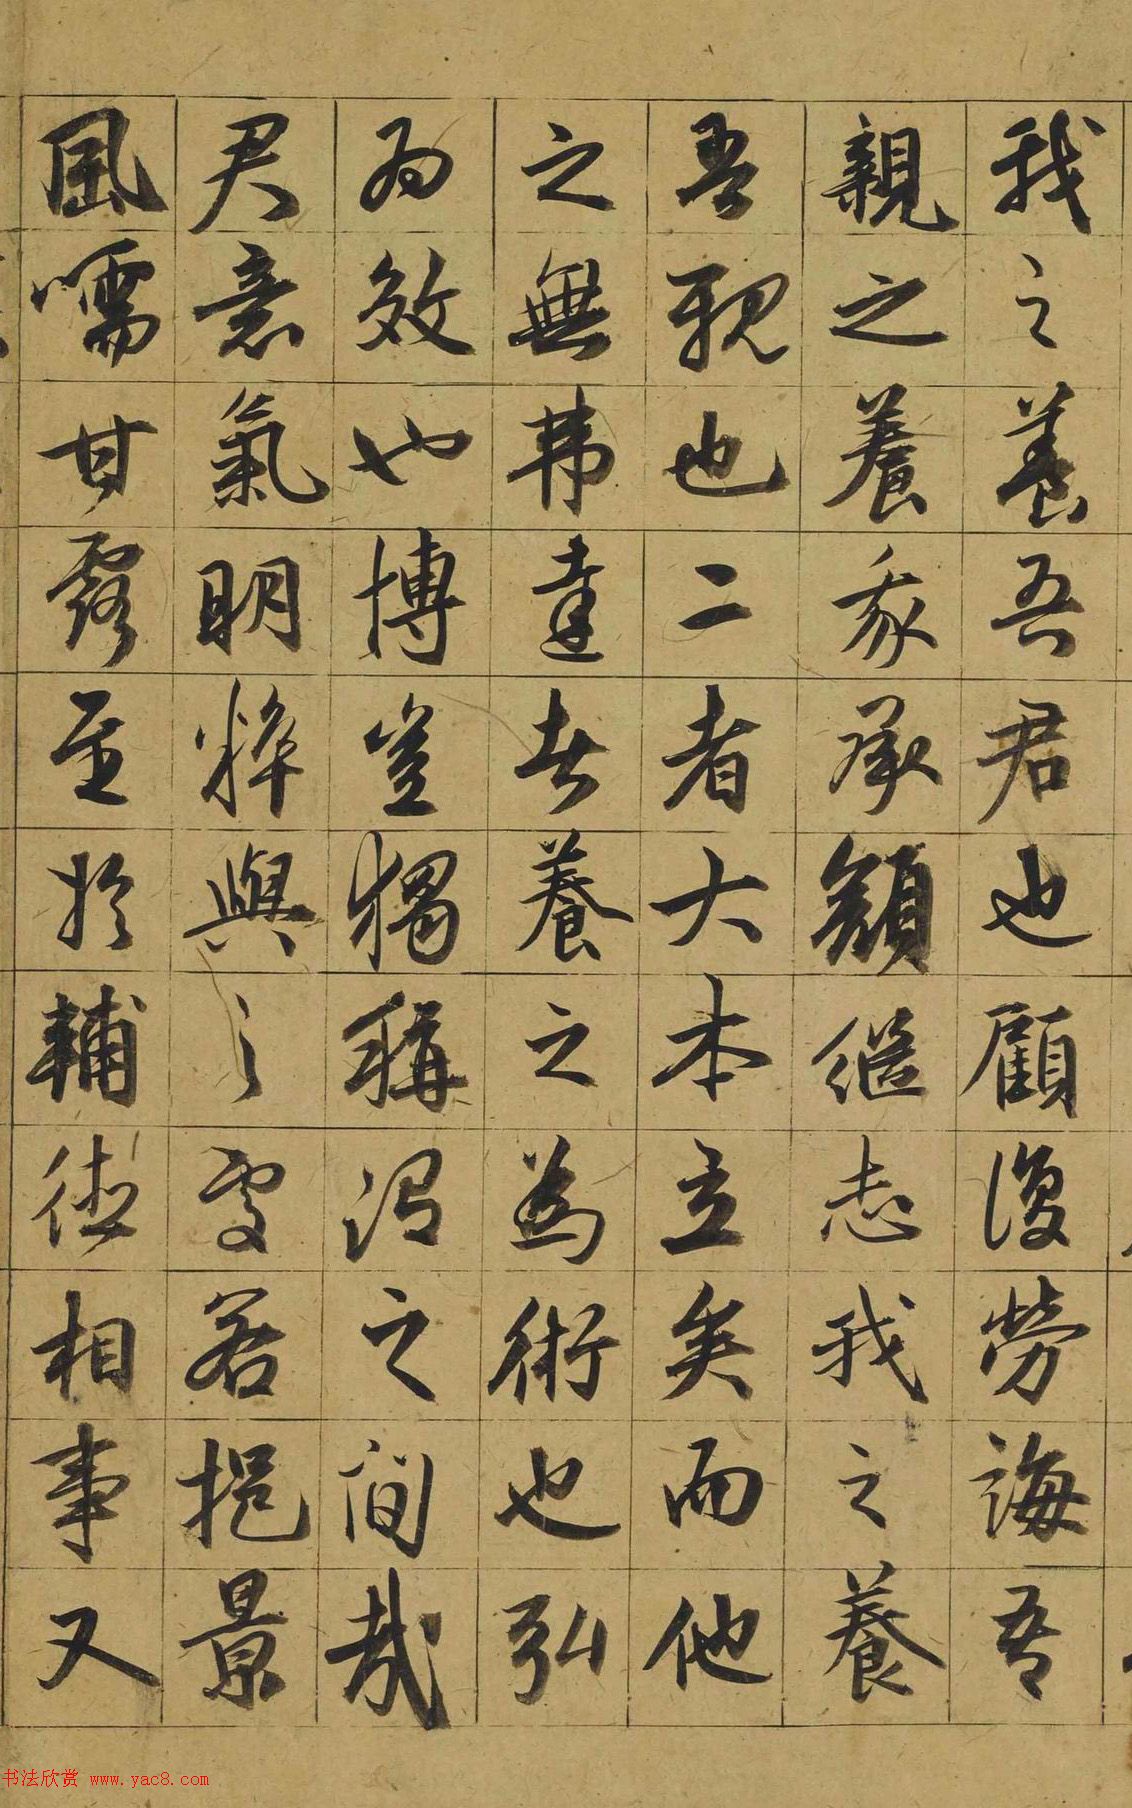 我之養吾君也顧復勞誨吾
親之養我承顏繼志我之養
吾親也二者大本立矣而他
之無弗達者養之為術也弘
為效也博豈獨稱謂之間哉
君意氣明粹與之處若挹景
風嚅甘露至於輔德相事又
书法欣赏 www.yac8.com